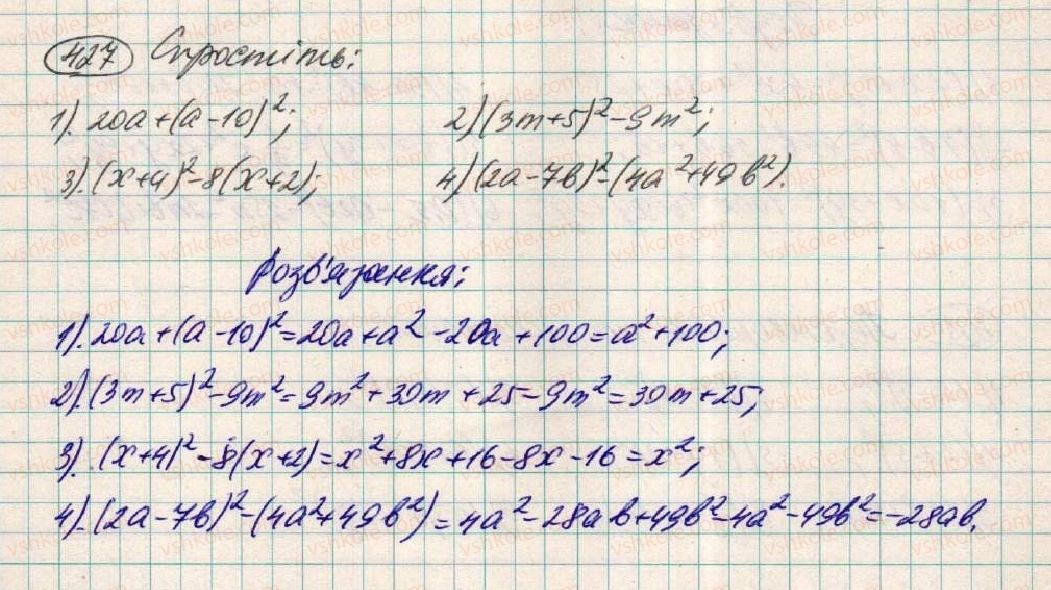 427 Спростіть:
1). 20a+(a-10)²; 2) (3m+5)²-9m²;
3). (x+4)²-8(x+2); 4) (2a-7b)²-(4a²+49b²).
Розв'язання:
1). 20a+(a-10)²=20a+a²-20a+100=a²+100;
2). (3m+5)²-9m²=9m²+30m+25-9m²=30m+25;
3). (x+4)²-8(x+2)=x²+8x+16-8x-16=x²;
4). (2a-7b)²-(4a²+49b²)=4a²-28ab+49b²-4a²-49b²=-28ab.